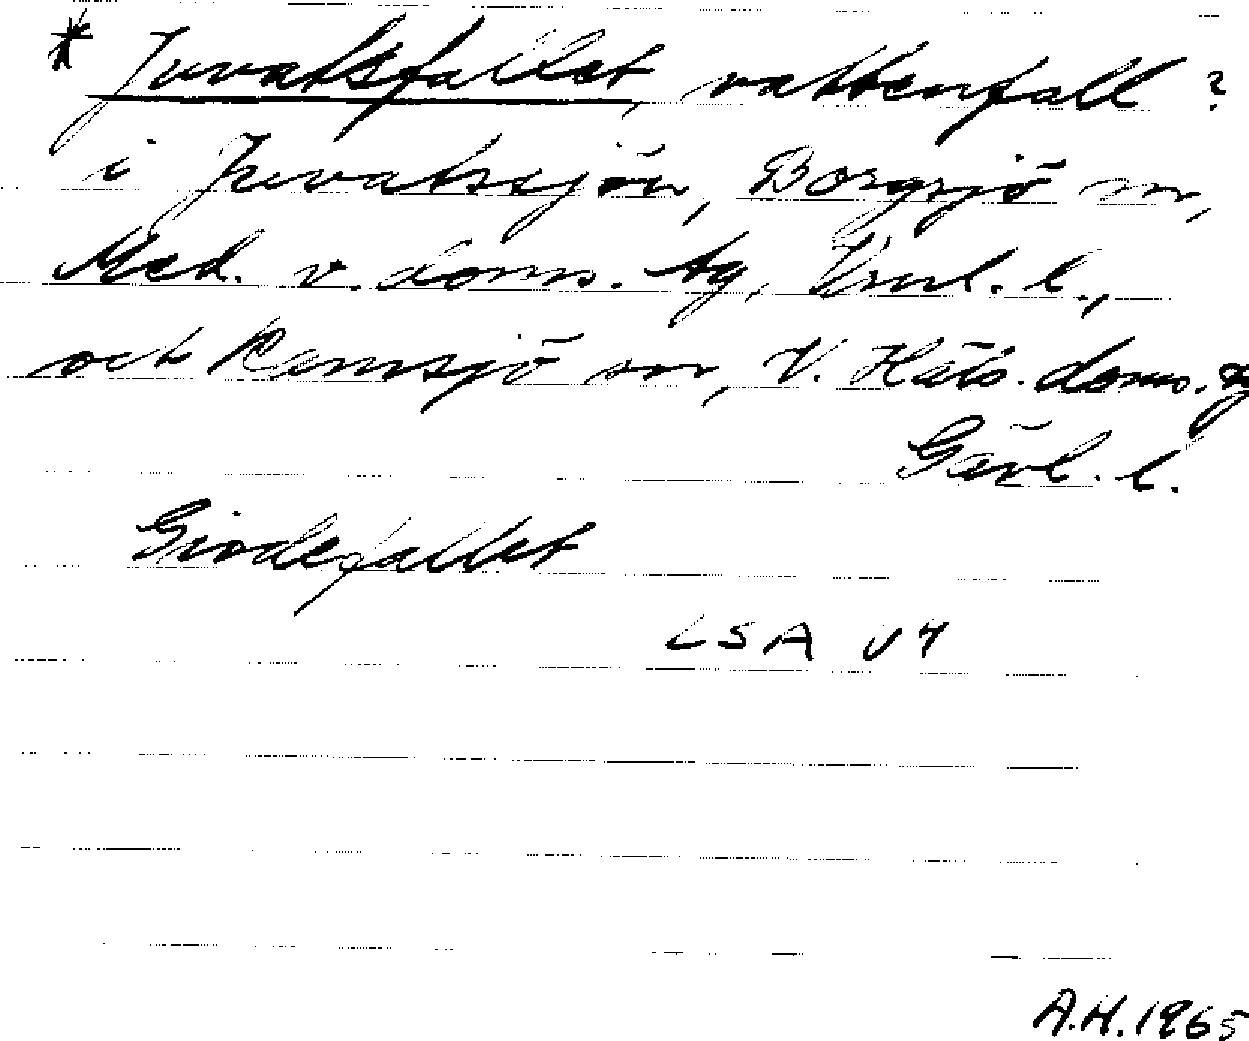 * Juvatsfallet, vattenfall?
i Juvatssjön, Borgsjö sn,
Med. v. doms. tg, Vnrl. l.,
och Ramsjö sn, V. Häls. doms. tg
Gävl. l.
Giodefallet
LSA V4
A.H. 1965